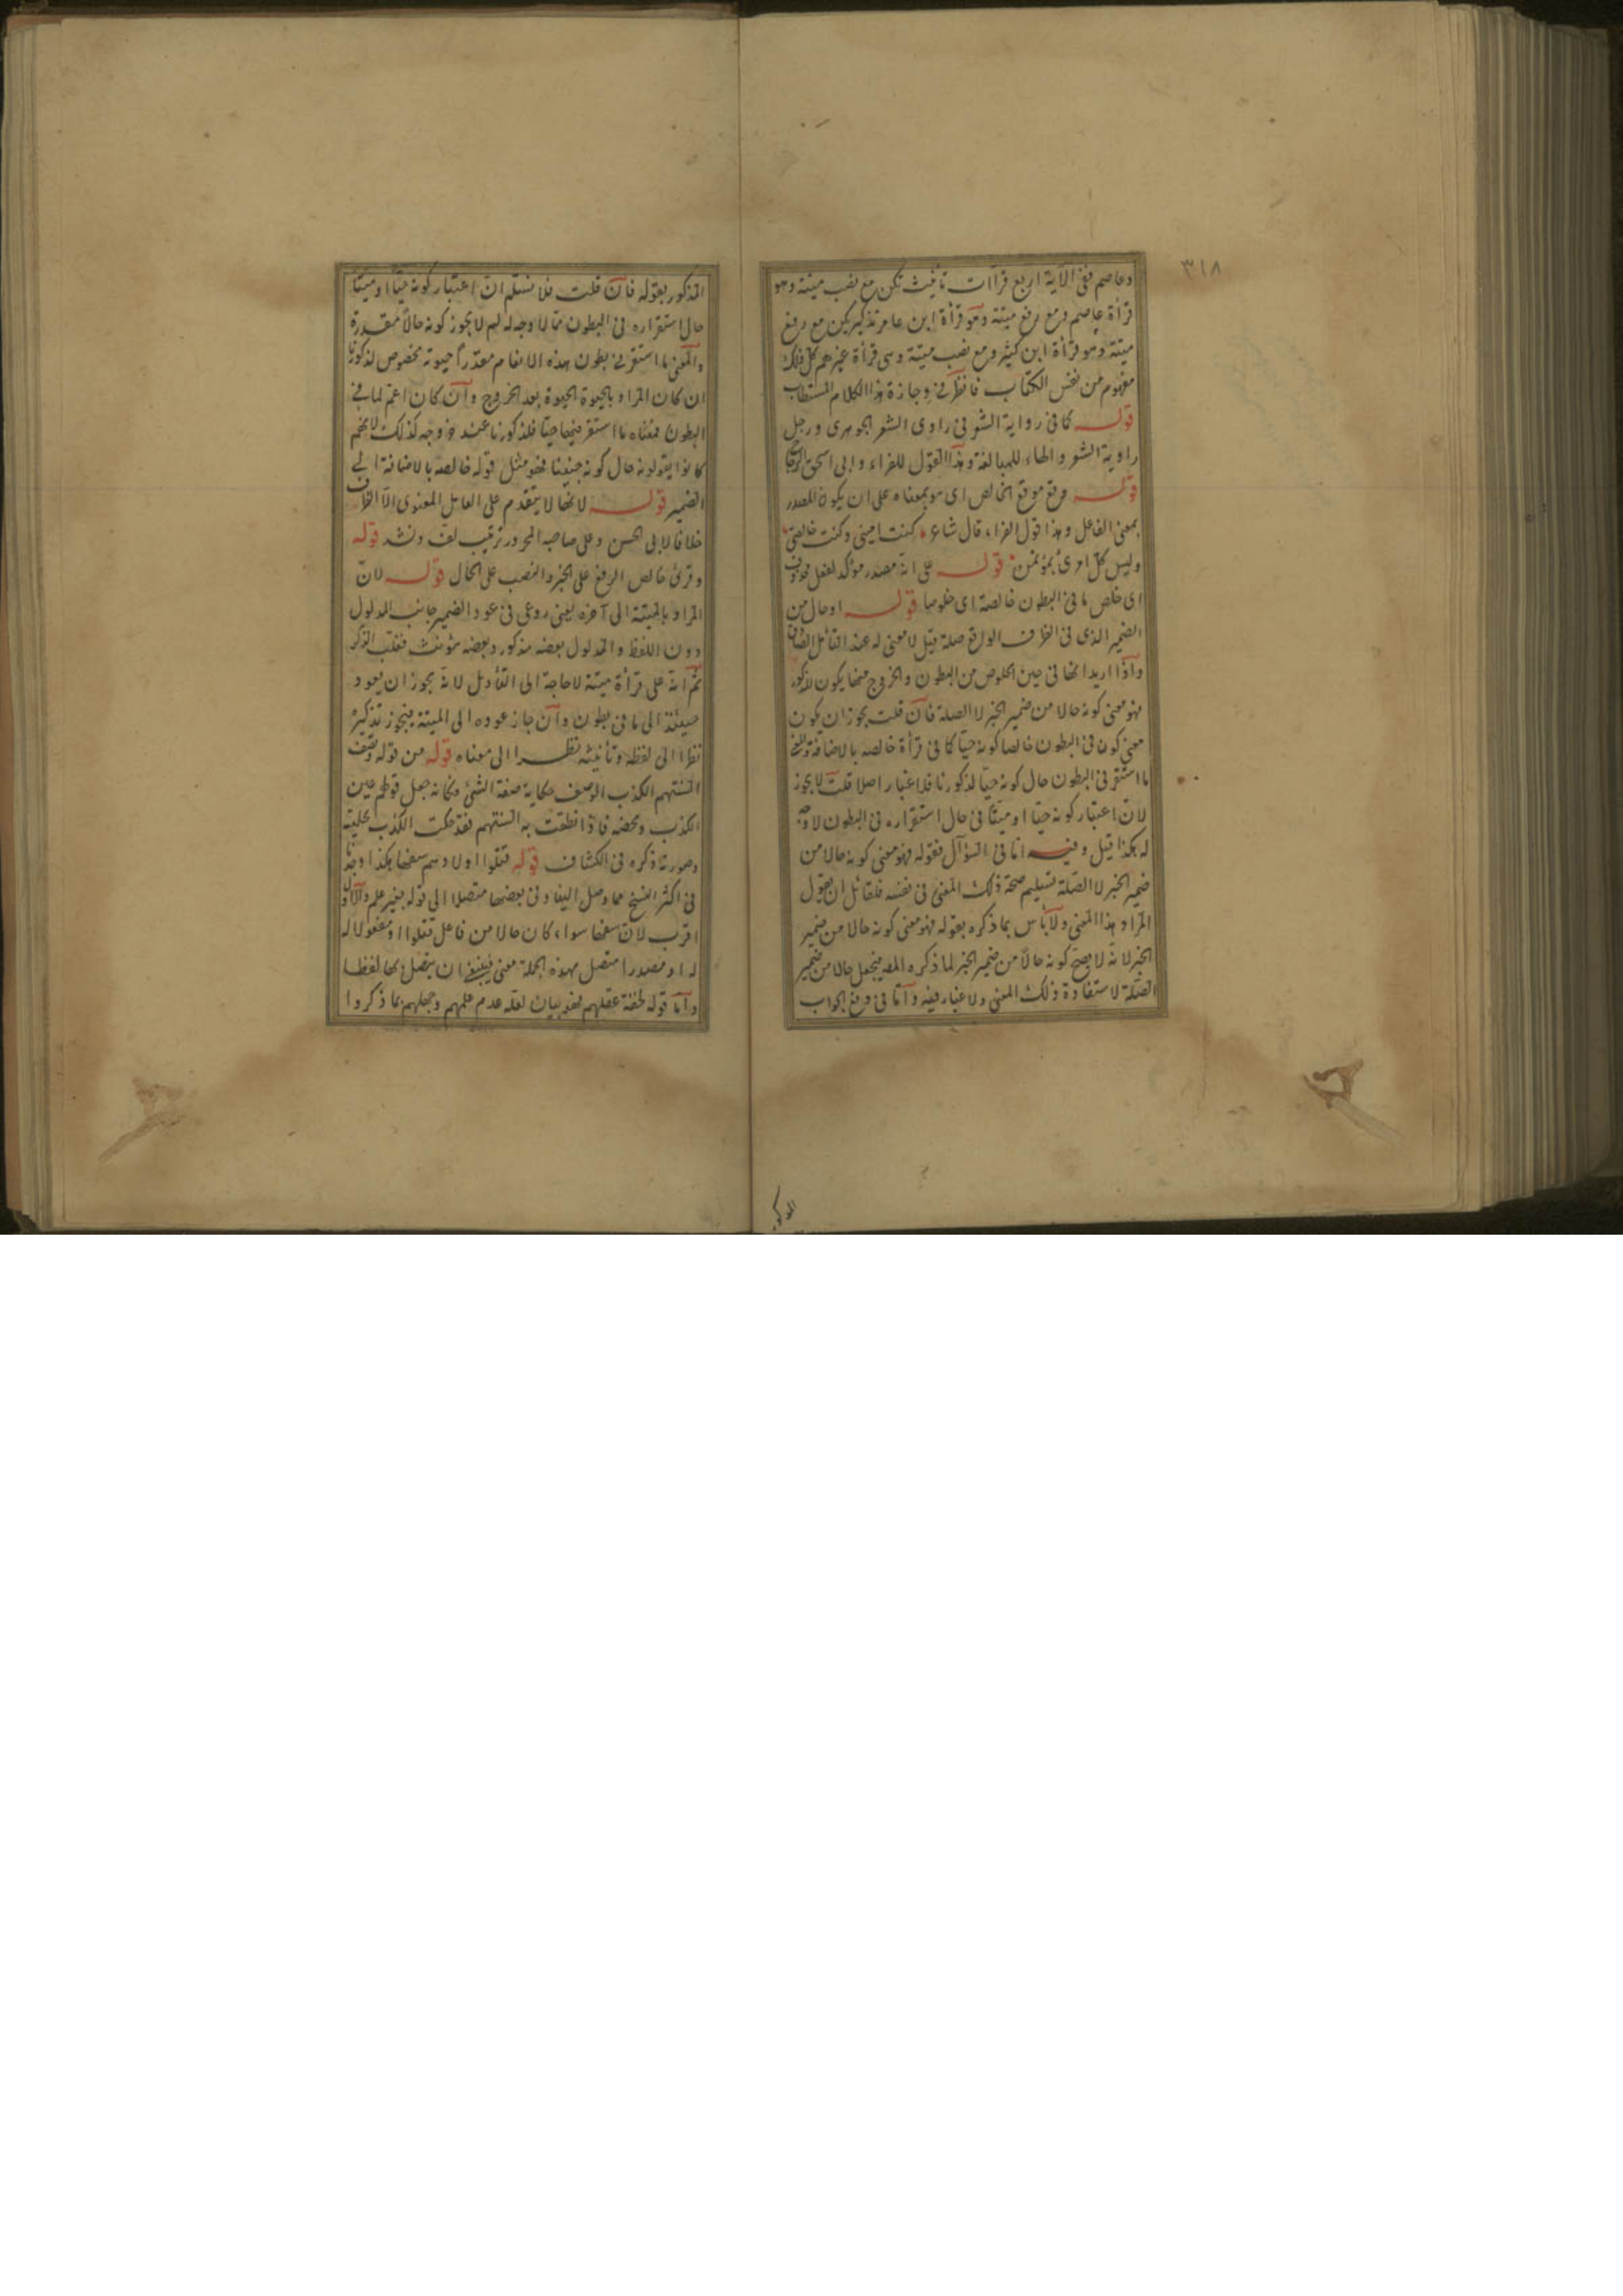 ٣١٨
وعاصم ففى الآية اربع قراآت تأنيث تكن مع نصب ميتة وهو
قرأة عاصم ومع رفع ميتة وهو قرأة ابن عامر تذكير يكن مع رفع
ميتة وهو قرأة ابن كثير ومع نصب ميتة وهى قرأة غيرهم كل ذلك
مفهوم من نفس الكتاب فانظر فى وجازة هذا الكلام المستطاب
قوله كما فى رواية الشعر فى راوى الشعر الجوهرى ورجل
راوية الشعر والهاء للمبالغة وهذا القول للفراء وابى اسحق الزجاج
قوله وقع موقع الخالص اى هو بمعناه على ان يكون المصدر
بمعنى الفاعل وهذا قول الفراء قال شاعر كنت امينى وكنت خالصتى
وليس كل امرئ بمؤتمن قوله على انه مصدر مؤكد لفعل محذوف
اى خلص ما فى البطون خالصة اى خلوصا قوله او حال من
الضمير الذى فى الظرف الواقع صلة قيل لا معنى له عند القائل الصادق
واذا اريد انها فى حين الخلوص من البطون والخروج منها يكون لذكور
فهو معنى كونه حالا من ضمير الخبر لا الصلة فان قلت يجوز ان يكون
معنى كون فى البطون خالصا كونه حيا كما فى قرأة خالصه بالاضافة والمعنى
ما استقر فى البطون حال كونه حيا لذكورنا فلا غبار اصلا قلت لا يجوز
لان اعتبار كونه حيا او ميتا فى حال استقراره فى البطون لا وجه
له هكذا قيل وفيه اما فى السؤال فقوله فهو معنى كونه حالا من
ضمير الخبر لا الصلة تسليم صحة ذلك المعنى فى نفسه فلقائل ان يقول
المراد هذا المعنى ولا بأس بما ذكره بقوله فهو معنى كونه حالا من ضمير
الخبر لانه لا يصح كونه حالا من ضمير الخبر لما ذكره المصـ فيجعل حالا من ضمير
الصلة لاستفادة ذلك المعنى ولا غبار فيه واما فى دفع الجواب
المذكور
المذكور بقوله فان قلت فلا نسلم ان اعتبار كونه حيا او ميتا
حال استقراره فى البطون مما لا وجه له لم لا يجوز كونه حالا مقدرة
والمعنى ما استقر فى بطون هذه الانعام مقدرا حيوته مخصوص لذكورنا
ان كان المراد بالحيوة الحيوة بعد الخروج وان كان اعم لما فى
البطون فمعناه ما استقر فيها حيا فلذكورنا عند خروجه كذلك لانهم
كانوا يقولونه حال كونه جنينا فهو مثل قوله خالصه بالاضافة الى
الضمير قوله لانها لا يتقدم على العامل المعنوى الا الظرف
خلافا لابى الحسن وعلى صاحبه المجرور ترتيب لف ونشر قوله
وقرئ خالص الرفع على الخبر والنصب على الحال قوله لان
المراد بالميتة الى آخره يعنى روعى فى عود الضمير جانب المدلول
دون اللفظ والمدلول بعضه مذكور وبعضه مؤنث فغلب الذكر
ثم انه على قرأة ميتة لا حاجة الى التأويل لانه يجوز ان يعود
حينئذ الى ما فى بطون وان جاز عوده الى الميتة فيجوز تذكيره
نظرا الى لفظه وتأنيثه نظرا الى معناه قوله من قوله وتصف
السنتهم الكذب الوصف حكاية صفة الشئ وكانه جعل قولهم عين
الكذب ومحضه فاذا نطقت به السنتهم فقد حكت الكذب بحليته
وصورته ذكره فى الكشاف قوله قتلوا اولادهم سفها هكذا وجدنا
فى اكثر النسخ مما وصل الينا وفى بعضها متصلا الى قوله بغير علم والاول
اقرب لان سفها سواء كان حالا من فاعل قتلوا او مفعولا له
له او مصدرا متصل بهذه الجملة معنى فينبغى ان يتصل بها لفظا
واما قوله لخفة عقلهم فهو بيان لعله عدم علمهم وجهلهم بما ذكروا